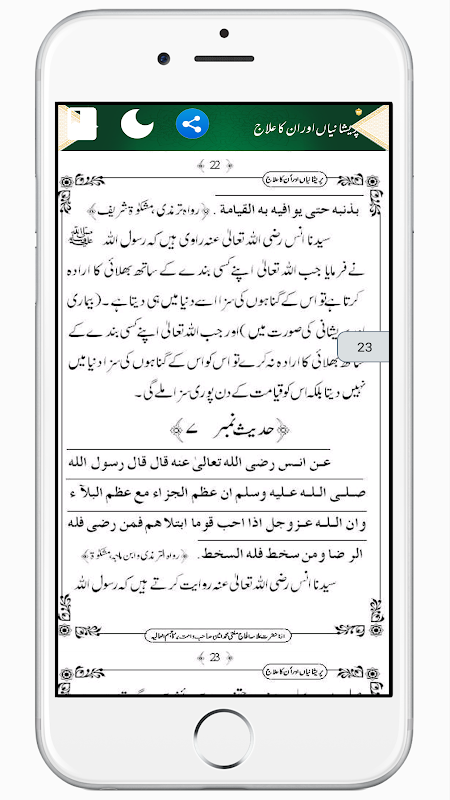 پریشانیاں اور ان کا علاج
22
پریشانیاں اور اُن کا علاج
بذنبه حتى يوافيه به القيامة . ﴿رواہ ترمذی، مشکوٰۃ شریف﴾
سیدنا انس رضی اللہ تعالیٰ عنہ راوی ہیں کہ رسول اللہ ﷺ
نے فرمایا جب اللہ تعالیٰ اپنے کسی بندے کے ساتھ بھلائی کا ارادہ
کرتا ہے تو اس کے گناہوں کی سزا اسے دنیا میں ہی دیتا ہے۔ (بیماری
پریشانی کی صورت میں) اور جب اللہ تعالیٰ اپنے کسی بندے کے
23
ساتھ بھلائی کا ارادہ نہ کرے تو اس کو اس کے گناہوں کی سزا دنیا میں
نہیں دیتا بلکہ اس کو قیامت کے دن پوری سزا ملے گی۔
﴿حدیث نمبر ۷﴾
عن انس رضی الله تعالیٰ عنه قال قال رسول الله
صلى الله عليه وسلم ان عظم الجزاء مع عظم البلآء
وان الله عزوجل اذا احب قوما ابتلاهم فمن رضى فله
الرضا ومن سخط فله السخط. ﴿رواہ الترمذی وابن ماجہ مشکوٰۃ﴾
سیدنا انس رضی اللہ تعالیٰ عنہ روایت کرتے ہیں کہ رسول اللہ
23
پریشانیاں اور اُن کا علاج